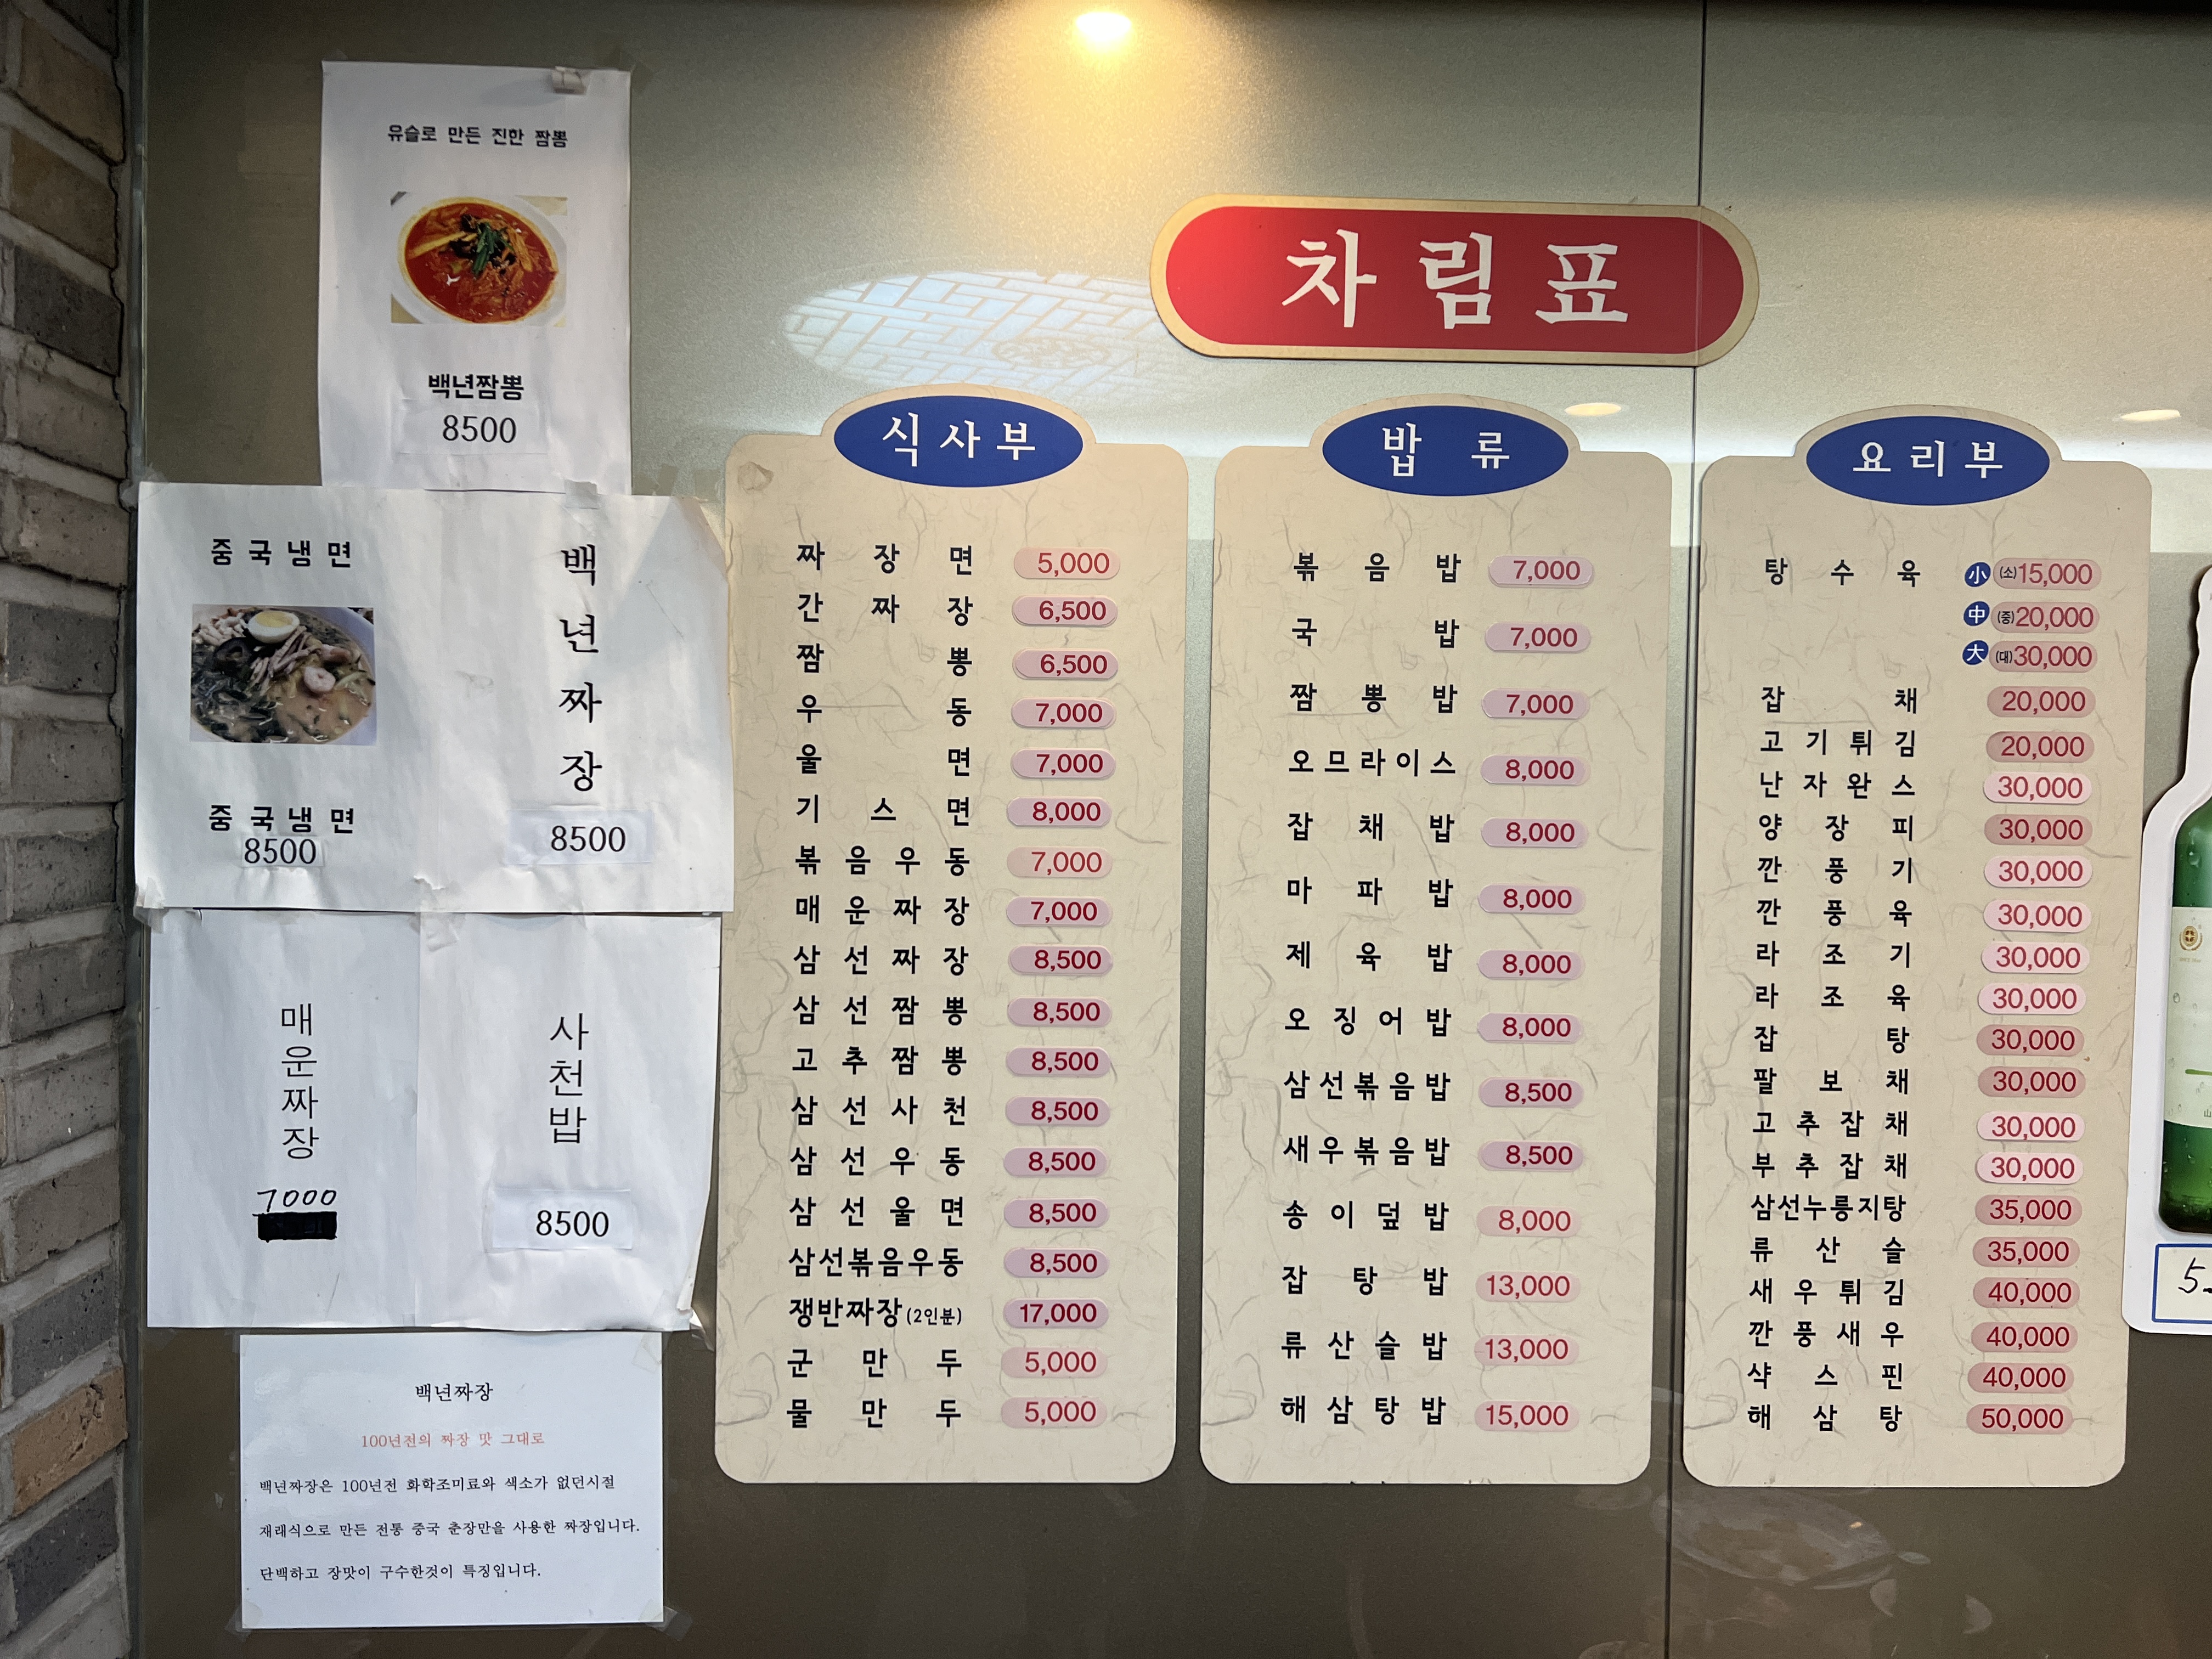 유슬로 만든 진한 짬뽕
백년짬뽕
8500
중국냉면
중국냉면
8500
백년짜장
8500
매운짜장
7000
사천밥
8500
백년짜장
100년전의 짜장 맛 그대로
백년짜장은 100년전 화학조미료와 색소가 없던시절
재래식으로 만든 전통 중국 춘장만을 사용한 짜장입니다.
단백하고 장맛이 구수한것이 특징입니다.
차림표
식사부
짜장면 5,000
간짜장 6,500
짬뽕 6,500
우동 7,000
울면 7,000
기스면 8,000
볶음우동 7,000
매운짜장 7,000
삼선짜장 8,500
삼선짬뽕 8,500
고추짬뽕 8,500
삼선사천 8,500
삼선우동 8,500
삼선울면 8,500
삼선볶음우동 8,500
쟁반짜장(2인분) 17,000
군만두 5,000
물만두 5,000
밥류
볶음밥 7,000
국밥 7,000
짬뽕밥 7,000
오므라이스 8,000
잡채밥 8,000
마파밥 8,000
제육밥 8,000
오징어밥 8,000
삼선볶음밥 8,500
새우볶음밥 8,500
송이덮밥 8,000
잡탕밥 13,000
류산슬밥 13,000
해삼탕밥 15,000
요리부
탕수육 小 (소)15,000
中 (중)20,000
大 (대)30,000
잡채 20,000
고기튀김 20,000
난자완스 30,000
양장피 30,000
깐풍기 30,000
깐풍육 30,000
라조기 30,000
라조육 30,000
잡탕 30,000
팔보채 30,000
고추잡채 30,000
부추잡채 30,000
삼선누룽지탕 35,000
류산슬 35,000
새우튀김 40,000
깐풍새우 40,000
샥스핀 40,000
해삼탕 50,000